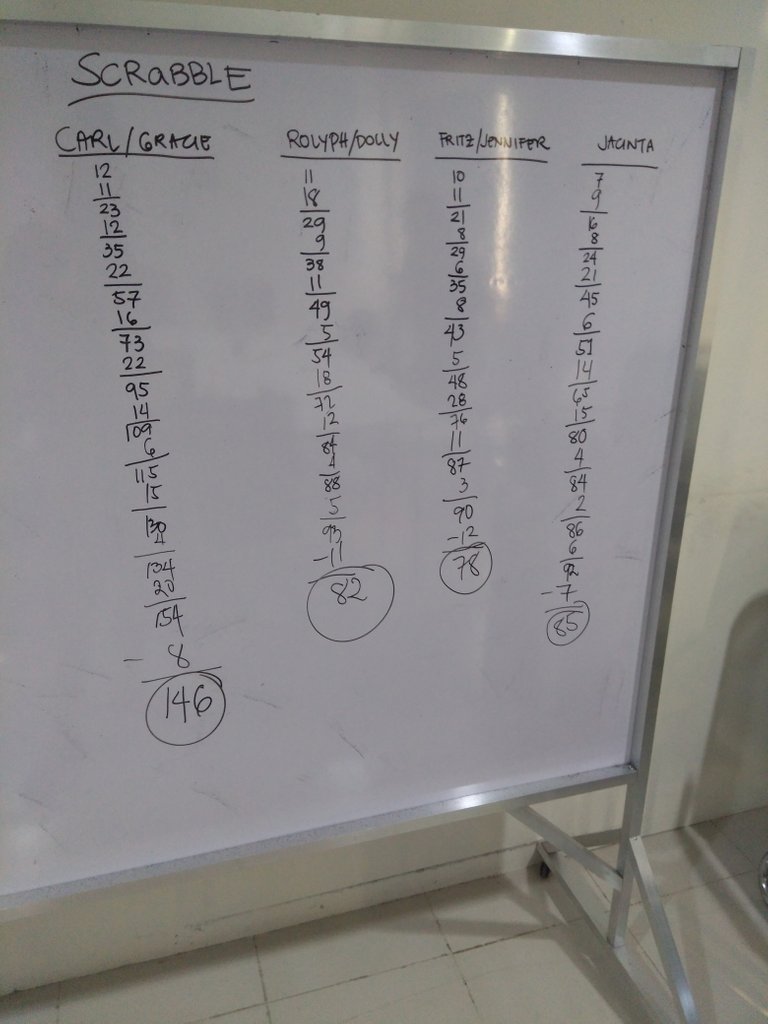 SCRABBLE
CARL/GRACIE
12
11
23
12
35
22
57
16
73
22
95
14
109
6
115
15
130
4
134
20
154
- 8
146
ROLYPH/DOLLY
11
18
29
9
38
11
49
5
54
18
72
12
84
4
88
5
93
-11
82
FRITZ/JENNIFER
10
11
21
8
29
6
35
8
43
5
48
28
76
11
87
3
90
-12
78
JACINTA
7
9
16
8
24
21
45
6
51
14
65
15
80
4
84
2
86
6
92
-7
85